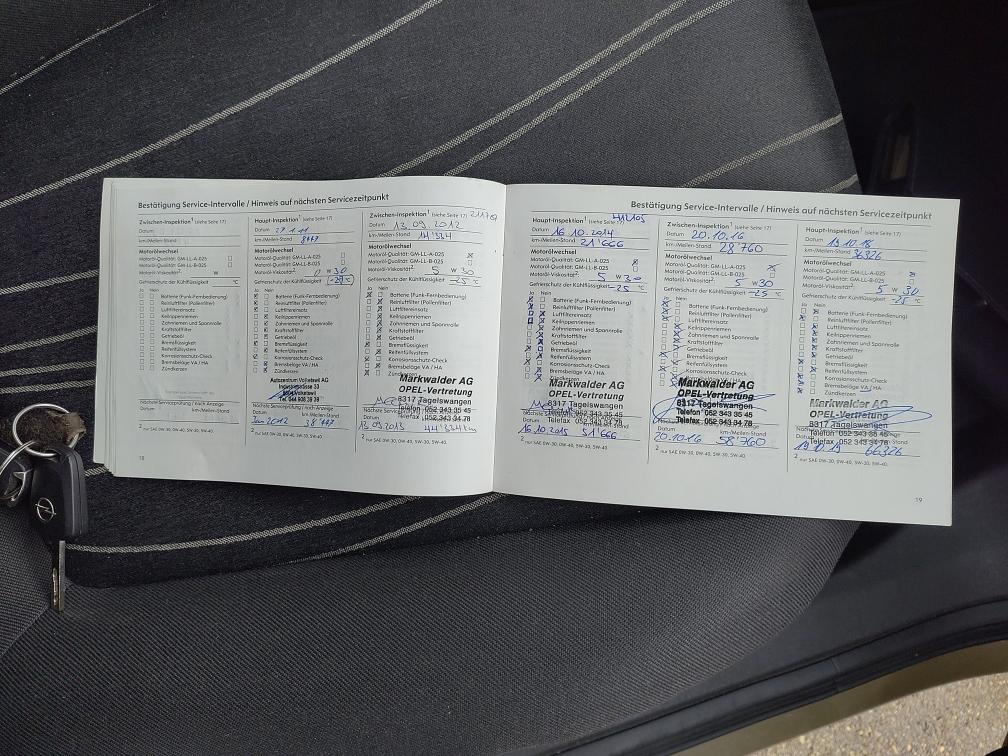 Bestätigung Service-Intervalle / Hinweis auf nächsten Servicezeitpunkt
Zwischen-Inspektion¹ (siehe Seite 17)
Datum
km-/Meilen-Stand
Motorölwechsel
Motoröl-Qualität: GM-LL-A-025
GM-LL-B-025
Motoröl-Viskosität²: W
Gefrierschutz der Kühlflüssigkeit °C
Ja Nein
Batterie (Funk-Fernbedienung)
Reinluftfilter (Pollenfilter)
Luftfiltereinsatz
Keilrippenriemen
Zahnriemen und Spannrolle
Kraftstofffilter
Getriebeöl
Bremsflüssigkeit
Reifenfüllsystem
Korrosionsschutz-Check
Bremsbeläge VA / HA
Zündkerzen
Nächste Serviceprüfung / nach Anzeige
Datum km/Meilen-Stand
² nur SAE 0W-30, 0W-40, 5W-30, 5W-40.
18
Haupt-Inspektion¹ (siehe Seite 17)
Datum
km-/Meilen-Stand
Motorölwechsel
Motoröl-Qualität: GM-LL-A-025
GM-LL-B-025
Motoröl-Viskosität²: W 30
Gefrierschutz der Kühlflüssigkeit °C
Ja Nein
Batterie (Funk-Fernbedienung)
Reinluftfilter (Pollenfilter)
Luftfiltereinsatz
Keilrippenriemen
Zahnriemen und Spannrolle
Kraftstofffilter
Getriebeöl
Bremsflüssigkeit
Reifenfüllsystem
Korrosionsschutz-Check
Bremsbeläge VA / HA
Zündkerzen
Autozentrum Volketswil AG
Nächste Serviceprüfung / nach Anzeige
Datum km/Meilen-Stand
² nur SAE 0W-30, 0W-40, 5W-30, 5W-40.
Zwischen-Inspektion¹ (siehe Seite 17)
Datum 13.09.2012
km-/Meilen-Stand 14'334
Motorölwechsel
Motoröl-Qualität: GM-LL-A-025
GM-LL-B-025
Motoröl-Viskosität²: 5 W 30
Gefrierschutz der Kühlflüssigkeit -25 °C
Ja Nein
Batterie (Funk-Fernbedienung)
Reinluftfilter (Pollenfilter)
Luftfiltereinsatz
Keilrippenriemen
Zahnriemen und Spannrolle
Kraftstofffilter
Getriebeöl
Bremsflüssigkeit
Reifenfüllsystem
Korrosionsschutz-Check
Bremsbeläge VA / HA
Zündkerzen
Markwalder AG
OPEL-Vertretung
8317 Tagelswangen
Telefon 052 343 35 45
Telefax 052 343 34 78
13.09.2013 44'334 km
² nur SAE 0W-30, 0W-40, 5W-30, 5W-40.
Bestätigung Service-Intervalle / Hinweis auf nächsten Servicezeitpunkt
Haupt-Inspektion¹ (siehe Seite 17)
Datum 16.10.2014
km-/Meilen-Stand 21'666
Motorölwechsel
Motoröl-Qualität: GM-LL-A-025
GM-LL-B-025
Motoröl-Viskosität²: 5 W 30
Gefrierschutz der Kühlflüssigkeit -25 °C
Ja Nein
Batterie (Funk-Fernbedienung)
Reinluftfilter (Pollenfilter)
Luftfiltereinsatz
Keilrippenriemen
Zahnriemen und Spannrolle
Kraftstofffilter
Getriebeöl
Bremsflüssigkeit
Reifenfüllsystem
Korrosionsschutz-Check
Bremsbeläge VA / HA
Zündkerzen
Markwalder AG
OPEL-Vertretung
8317 Tagelswangen
Telefon 052 343 35 45
Telefax 052 343 34 78
16.10.2015 51'666
² nur SAE 0W-30, 0W-40, 5W-30, 5W-40.
Zwischen-Inspektion¹ (siehe Seite 17)
Datum 20.10.16
km-/Meilen-Stand 28'760
Motorölwechsel
Motoröl-Qualität: GM-LL-A-025
GM-LL-B-025
Motoröl-Viskosität²: 5 W 30
Gefrierschutz der Kühlflüssigkeit -25 °C
Ja Nein
Batterie (Funk-Fernbedienung)
Reinluftfilter (Pollenfilter)
Luftfiltereinsatz
Keilrippenriemen
Zahnriemen und Spannrolle
Kraftstofffilter
Getriebeöl
Bremsflüssigkeit
Reifenfüllsystem
Korrosionsschutz-Check
Bremsbeläge VA / HA
Markwalder AG
OPEL-Vertretung
8317 Tagelswangen
Telefon 052 343 35 45
Telefax 052 343 34 78
20.10.16 58'760
² nur SAE 0W-30, 0W-40, 5W-30, 5W-40.
Haupt-Inspektion¹ (siehe Seite 17)
Datum 19.10.18
km-/Meilen-Stand 36326
Motorölwechsel
Motoröl-Qualität: GM-LL-A-025
GM-LL-B-025
Motoröl-Viskosität²: 5 W 30
Gefrierschutz der Kühlflüssigkeit -25 °C
Ja Nein
Batterie (Funk-Fernbedienung)
Reinluftfilter (Pollenfilter)
Luftfiltereinsatz
Keilrippenriemen
Zahnriemen und Spannrolle
Kraftstofffilter
Getriebeöl
Bremsflüssigkeit
Reifenfüllsystem
Korrosionsschutz-Check
Bremsbeläge VA / HA
Zündkerzen
Markwalder AG
OPEL-Vertretung
8317 Tagelswangen
Telefon 052 343 35 45
Telefax 052 343 34 78
19.10.19 66326
² nur SAE 0W-30, 0W-40, 5W-30, 5W-40.
19